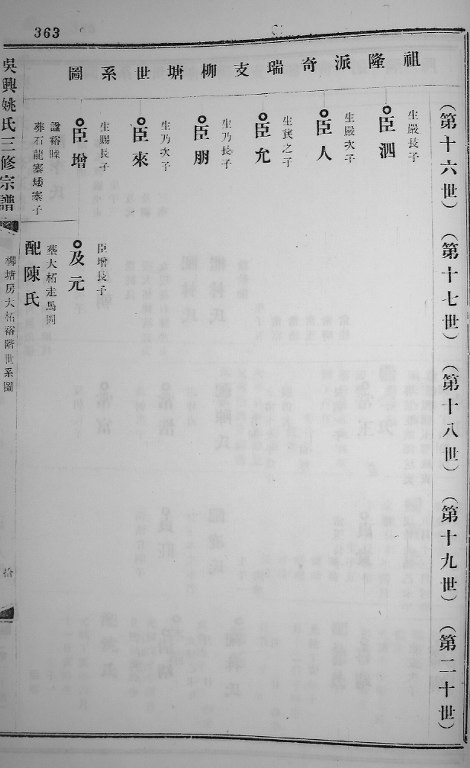 363
祖隆派奇瑞支柳塘世系圖
（第十六世）（第十七世）（第十八世）（第十九世）（第二十世）
生嚴長子
臣泗
生嚴次子
臣人
生袞之子
臣允
生乃長子
臣朋
生乃次子
臣來
生賜長子
臣增
諡裕
葬石龍寨矮寨子
臣增長子
及元
葬大柘走馬
配陳氏
吳興姚氏三修宗譜
柳塘房大柘裕階世系圖